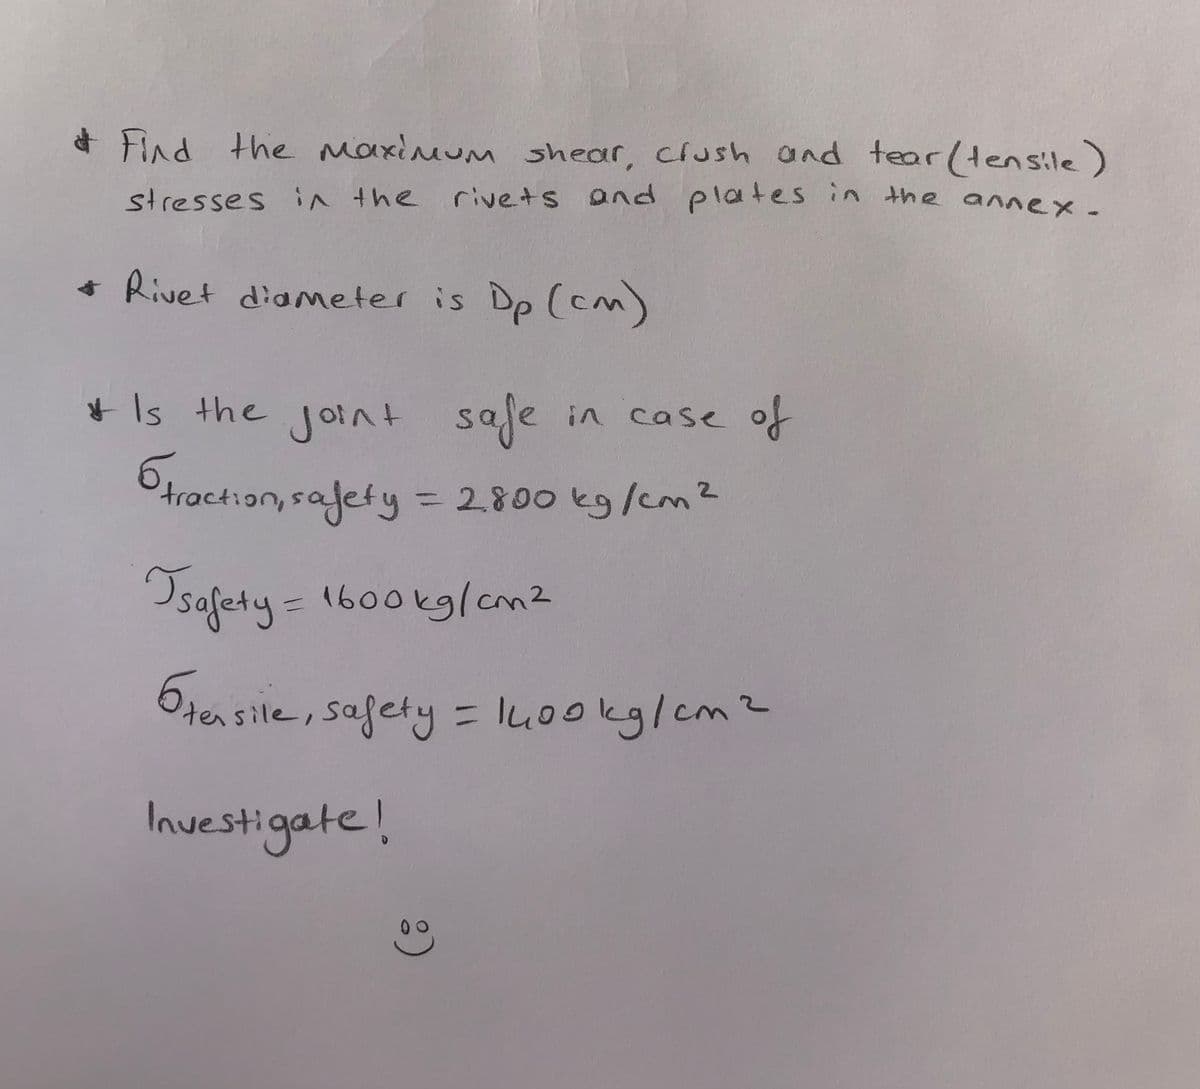 * Find the maximum shear, crush and tear (tensile)
stresses in the rivets and plates in the annex.
* Rivet diameter is Dp (cm)
* Is the joint safe in case of
σtraction, safety = 2.800 kg/cm²
τsafety = 1600 kg/cm²
σtensile, safety = 1400 kg/cm²
Investigate!